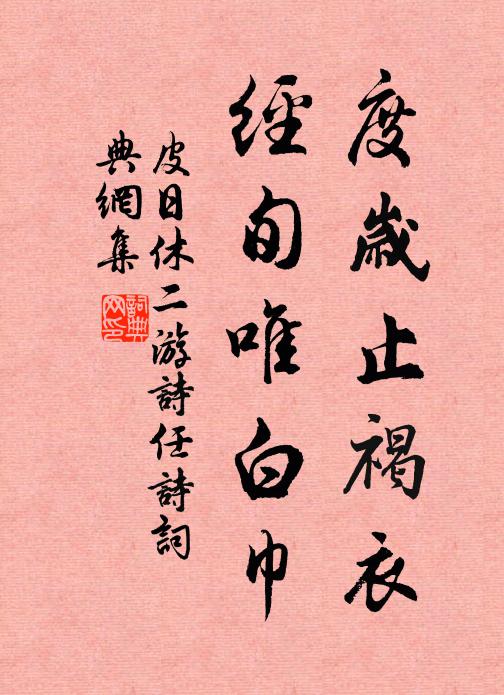 度歲止褐衣
經旬唯白巾
皮日休二游詩任詩詞
典網集
詞典網印